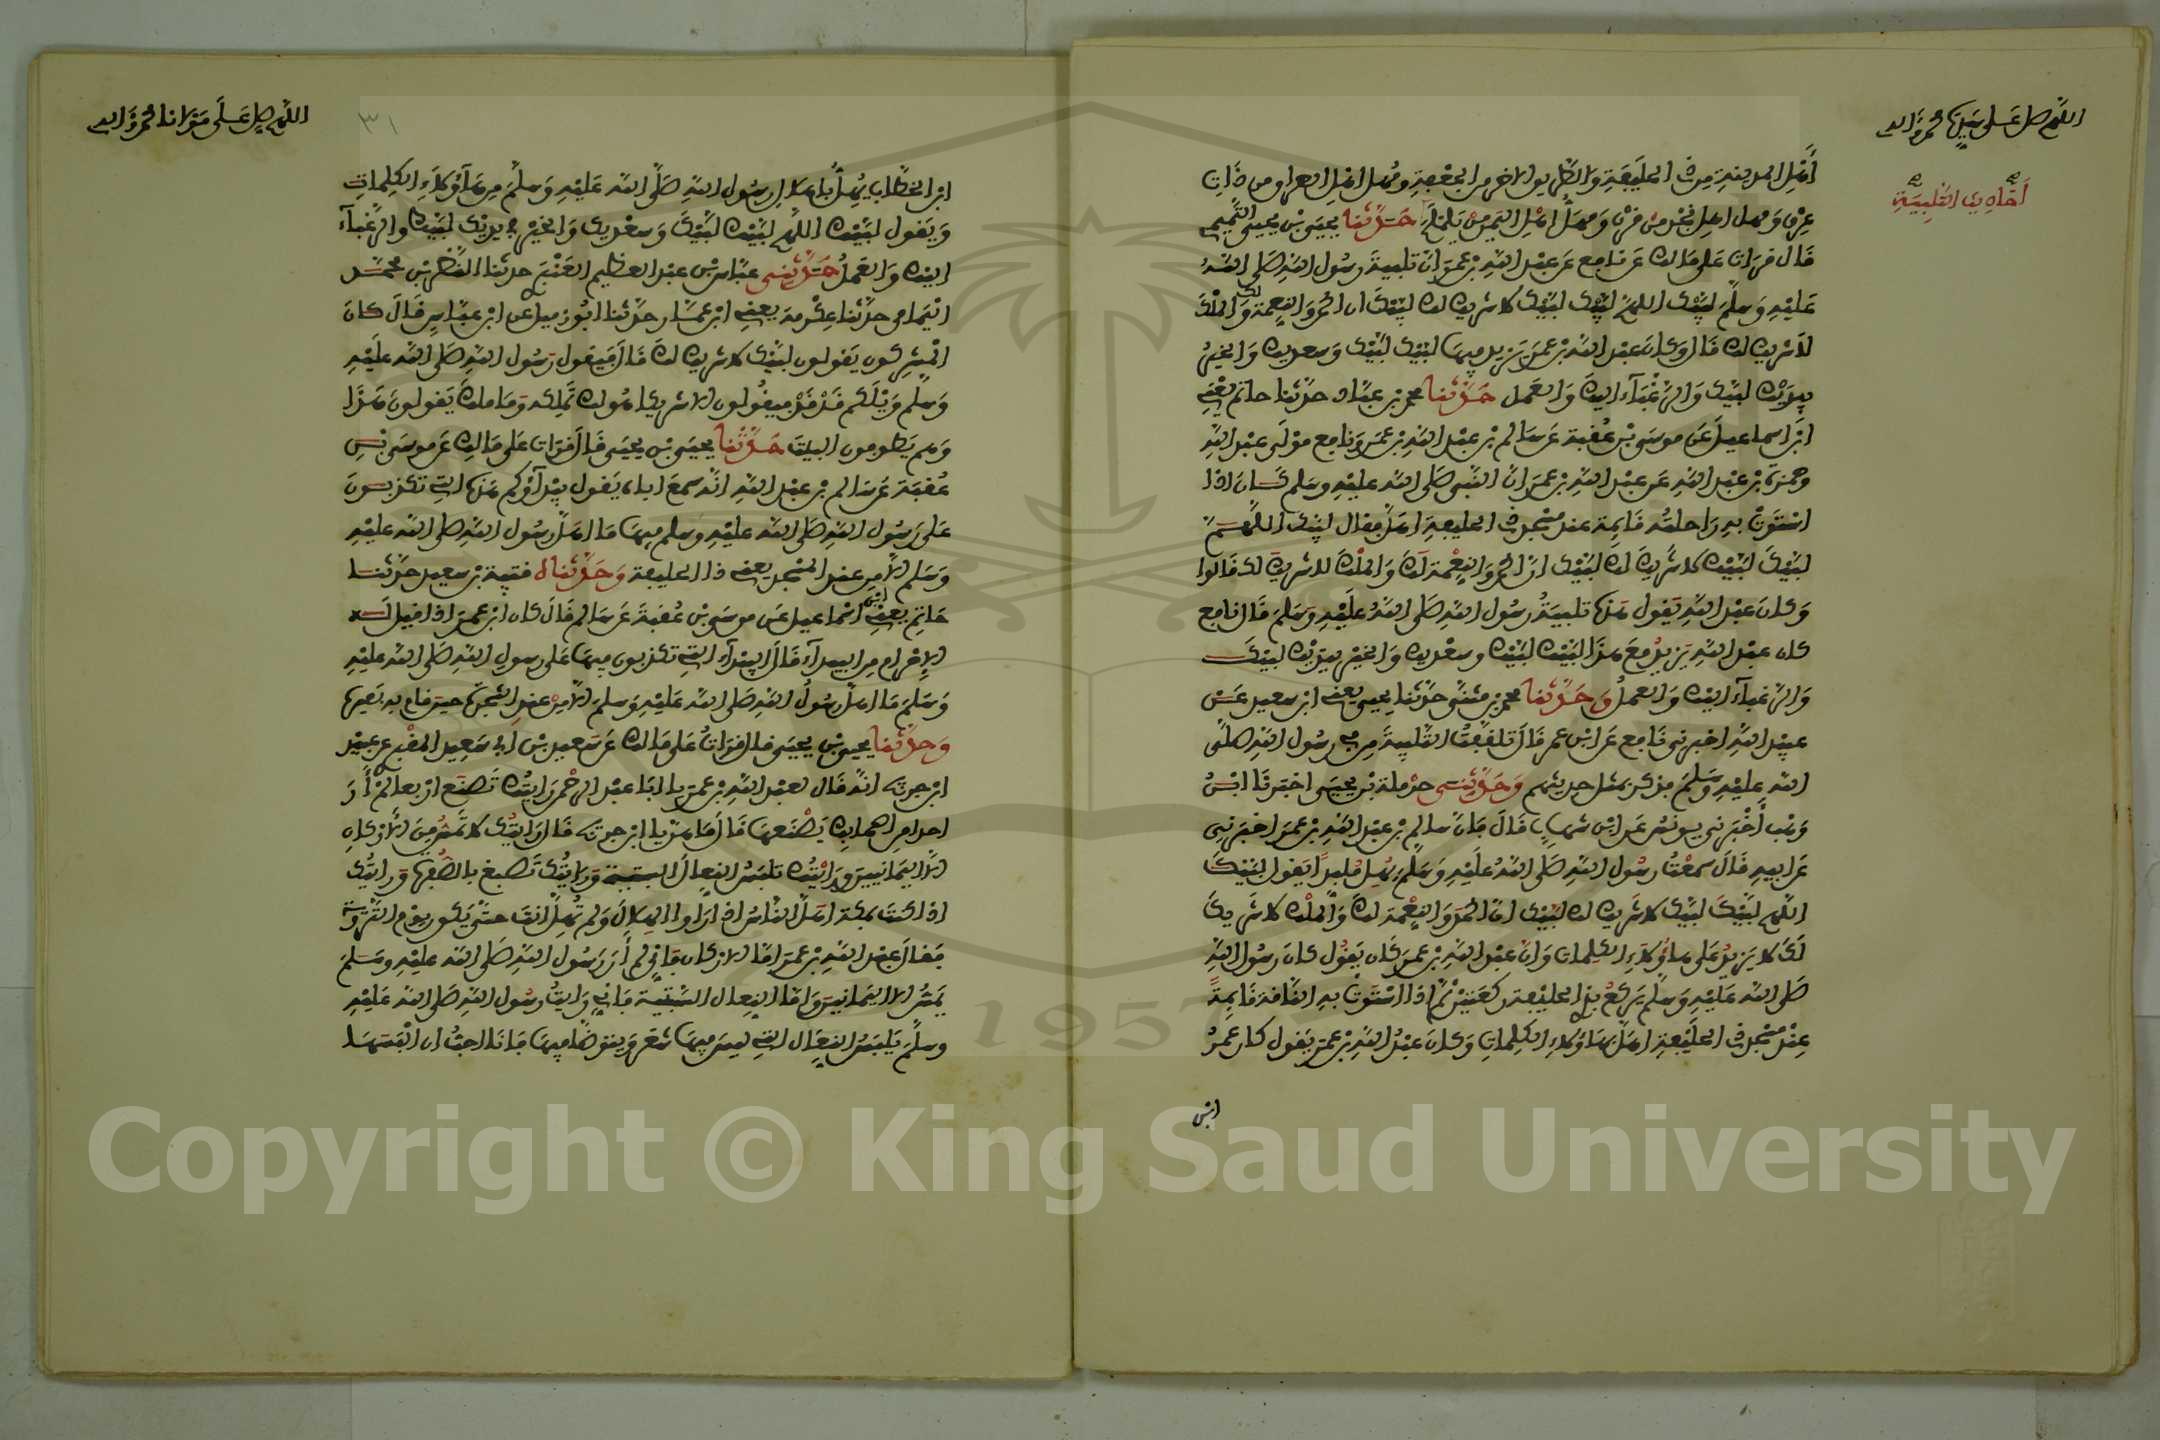 اللهم صل على سيدنا محمد وآله
أحاديث التلبية
أهل المدينة من ذي الحليفة والطريق الاخر من الجحفة ومهل اهل العراق من ذات
عرق ومهل اهل نجد من قرن ومهل اهل اليمن من يلملم حدثنا يحيى بن يحيى التميمي
قال قرات على مالك عن نافع عن عبد الله بن عمر ان تلبية رسول الله صلى الله
عليه وسلم لبيك اللهم لبيك لبيك لا شريك لك لبيك ان الحمد والنعمة لك والملك
لا شريك لك قال وكان عبد الله بن عمر يزيد فيها لبيك لبيك وسعديك والخير
بيديك لبيك والرغباء اليك والعمل حدثنا محمد بن عباد حدثنا حاتم يعني
ابن اسماعيل عن موسى بن عقبة عن سالم بن عبد الله بن عمر ونافع مولى عبد الله
وحمزة بن عبد الله عن عبد الله بن عمر ان النبي صلى الله عليه وسلم كان اذا
استوت به راحلته قائمة عند مسجد ذي الحليفة اهل فقال لبيك اللهم
لبيك لبيك لا شريك لك لبيك ان الحمد والنعمة لك والملك لا شريك لك قالوا
وكان عبد الله يقول هذه تلبية رسول الله صلى الله عليه وسلم قال نافع
كان عبد الله يزيد مع هذا لبيك لبيك وسعديك والخير بيديك لبيك
والرغباء اليك والعمل وحدثنا محمد بن مثنى حدثنا يحيى يعني ابن سعيد عن
عبيد الله اخبرني نافع عن ابن عمر قال تلقفت التلبية من في رسول الله صلى
الله عليه وسلم فذكر بمثل حديثهم وحدثني حرملة بن يحيى اخبرنا ابن
وهب أخبرني يونس عن ابن شهاب قال فان سالم بن عبد الله بن عمر اخبرني
عن ابيه قال سمعت رسول الله صلى الله عليه وسلم يهل ملبدا يقول لبيك
اللهم لبيك لبيك لا شريك لك لبيك ان الحمد والنعمة لك والملك لا شريك
لك لا يزيد على هاؤلاء الكلمات وان عبد الله بن عمر كان يقول كان رسول الله
صلى الله عليه وسلم يركع بذي الحليفة ركعتين ثم اذا استوت به الناقة قائمة
عند مسجد ذي الحليفة اهل بهاؤلاء الكلمات وكان عبد الله بن عمر يقول كان عمر
ابن
اللهم صل على مولانا محمد وآله
٣١
ابن الخطاب يهل باهلال رسول الله صلى الله عليه وسلم من هاؤلاء الكلمات
ويقول لبيك اللهم لبيك لبيك وسعديك والخير في يديك لبيك والرغباء
اليك والعمل حدثني عباس بن عبد العظيم العنبري حدثنا النضر بن محمد
اليمامي حدثنا عكرمة يعني ابن عمار حدثنا ابو زميل عن ابن عباس قال كان
المشركون يقولون لبيك لا شريك لك قال فيقول رسول الله صلى الله عليه
وسلم ويلكم قد قد فيقولون الا شريكا هو لك تملكه وما ملك يقولون هذا
وهم يطوفون بالبيت حدثنا يحيى بن يحيى قال قرات على مالك عن موسى بن
عقبة عن سالم بن عبد الله انه سمع اباه يقول بيداؤكم هذه التي تكذبون
على رسول الله صلى الله عليه وسلم فيها ما اهل رسول الله صلى الله عليه
وسلم الا من عند المسجد يعني ذا الحليفة وحدثناه قتيبة بن سعيد حدثنا
حاتم يعني ابن اسماعيل عن موسى بن عقبة عن سالم قال كان ابن عمر اذا قيل له
الاحرام من البيداء قال البيداء التي تكذبون فيها على رسول الله صلى الله عليه
وسلم ما اهل رسول الله صلى الله عليه وسلم الا من عند الشجرة حين قام به بعيره
وحدثنا يحيى بن يحيى قال قرات على مالك عن سعيد بن ابي سعيد المقبري عن عبيد
ابن جريج انه قال لعبد الله بن عمر يا ابا عبد الرحمن رايتك تصنع اربعا لم أر
احدا من اصحابك يصنعها قال ما هن يا ابن جريج قال رايتك لا تمس من الاركان
الا اليمانيين ورايتك تلبس النعال السبتية ورايتك تصبغ بالصفرة ورايتك
اذا كنت بمكة اهل الناس اذا راوا الهلال ولم تهل انت حتى يكون يوم التروية
فقال عبد الله بن عمر اما الاركان فاني لم أر رسول الله صلى الله عليه وسلم
يمس الا اليمانيين واما النعال السبتية فاني رايت رسول الله صلى الله عليه
وسلم يلبس النعال التي ليس فيها شعر ويتوضا فيها فانا احب ان البسها